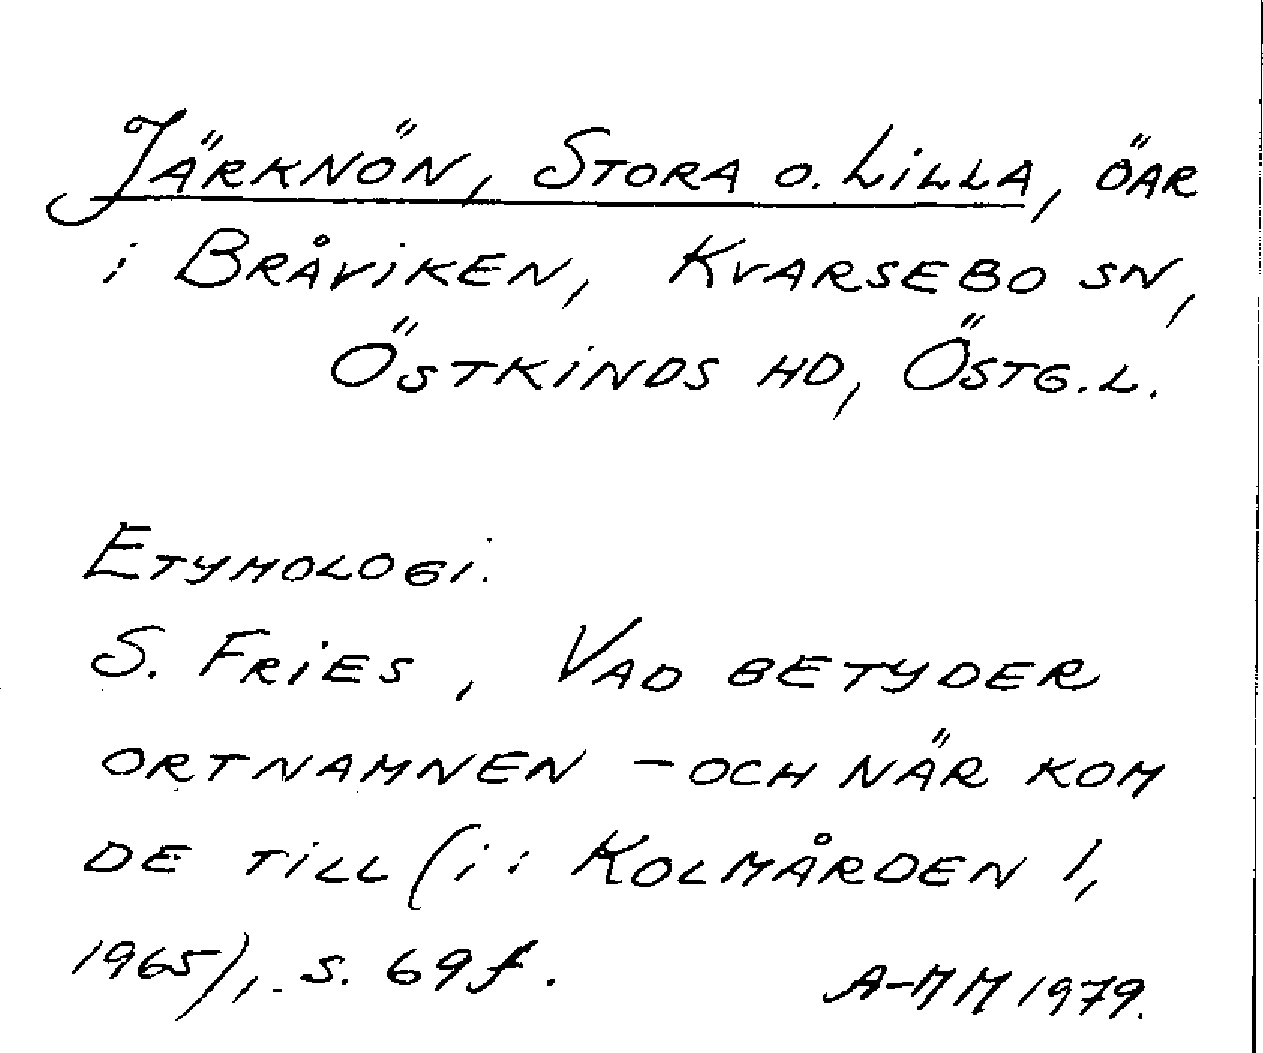 JÄRKNÖN, STORA O. LILLA, ÖAR
i BRÅVIKEN, KVARSEBO SN,
ÖSTKINDS HD, ÖSTG.L.
ETYMOLOGI.
S. FRIES, VAD BETYDER
ORTNAMNEN – OCH NÄR KOM
DE TILL (i: KOLMÅRDEN 1,
1965), S. 69 f.
A-MM 1979.